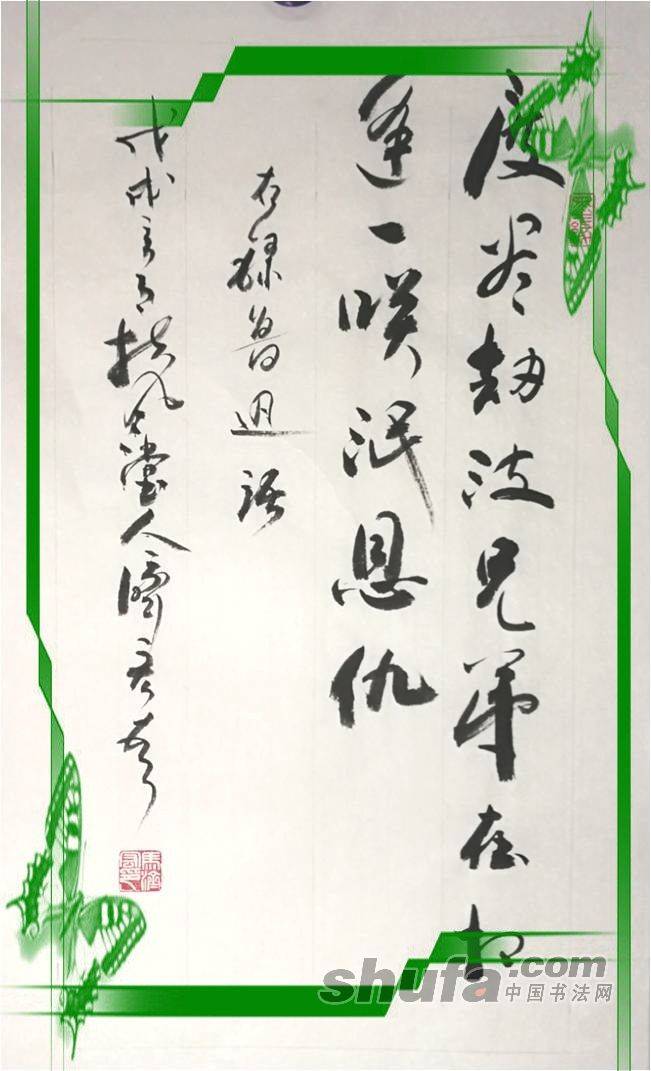 度尽劫波兄弟在相
逢一咲泯恩仇
右录鲁迅语
戊戌
扶风堂人
shufa.com
中国书法网